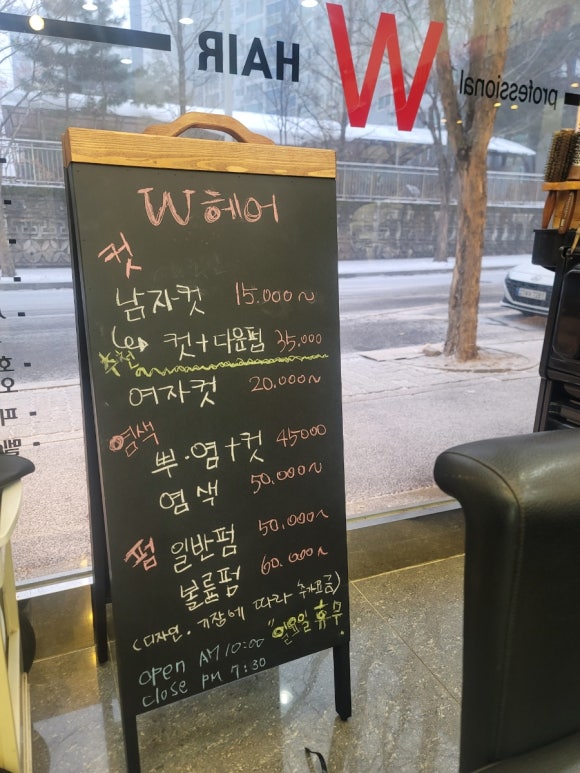 HAIR
W
professional
W 헤어
컷
남자컷 15.000~
추천 컷+다운펌 35.000
여자컷 20.000~
염색
뿌·염+컷 45000
염색 50.000~
펌
일반펌 50.000~
볼륨펌 60.000~
(디자인. 기장에 따라 추가요금)
OPEN AM 10:00 "일요일 휴무"
close PM 7:30